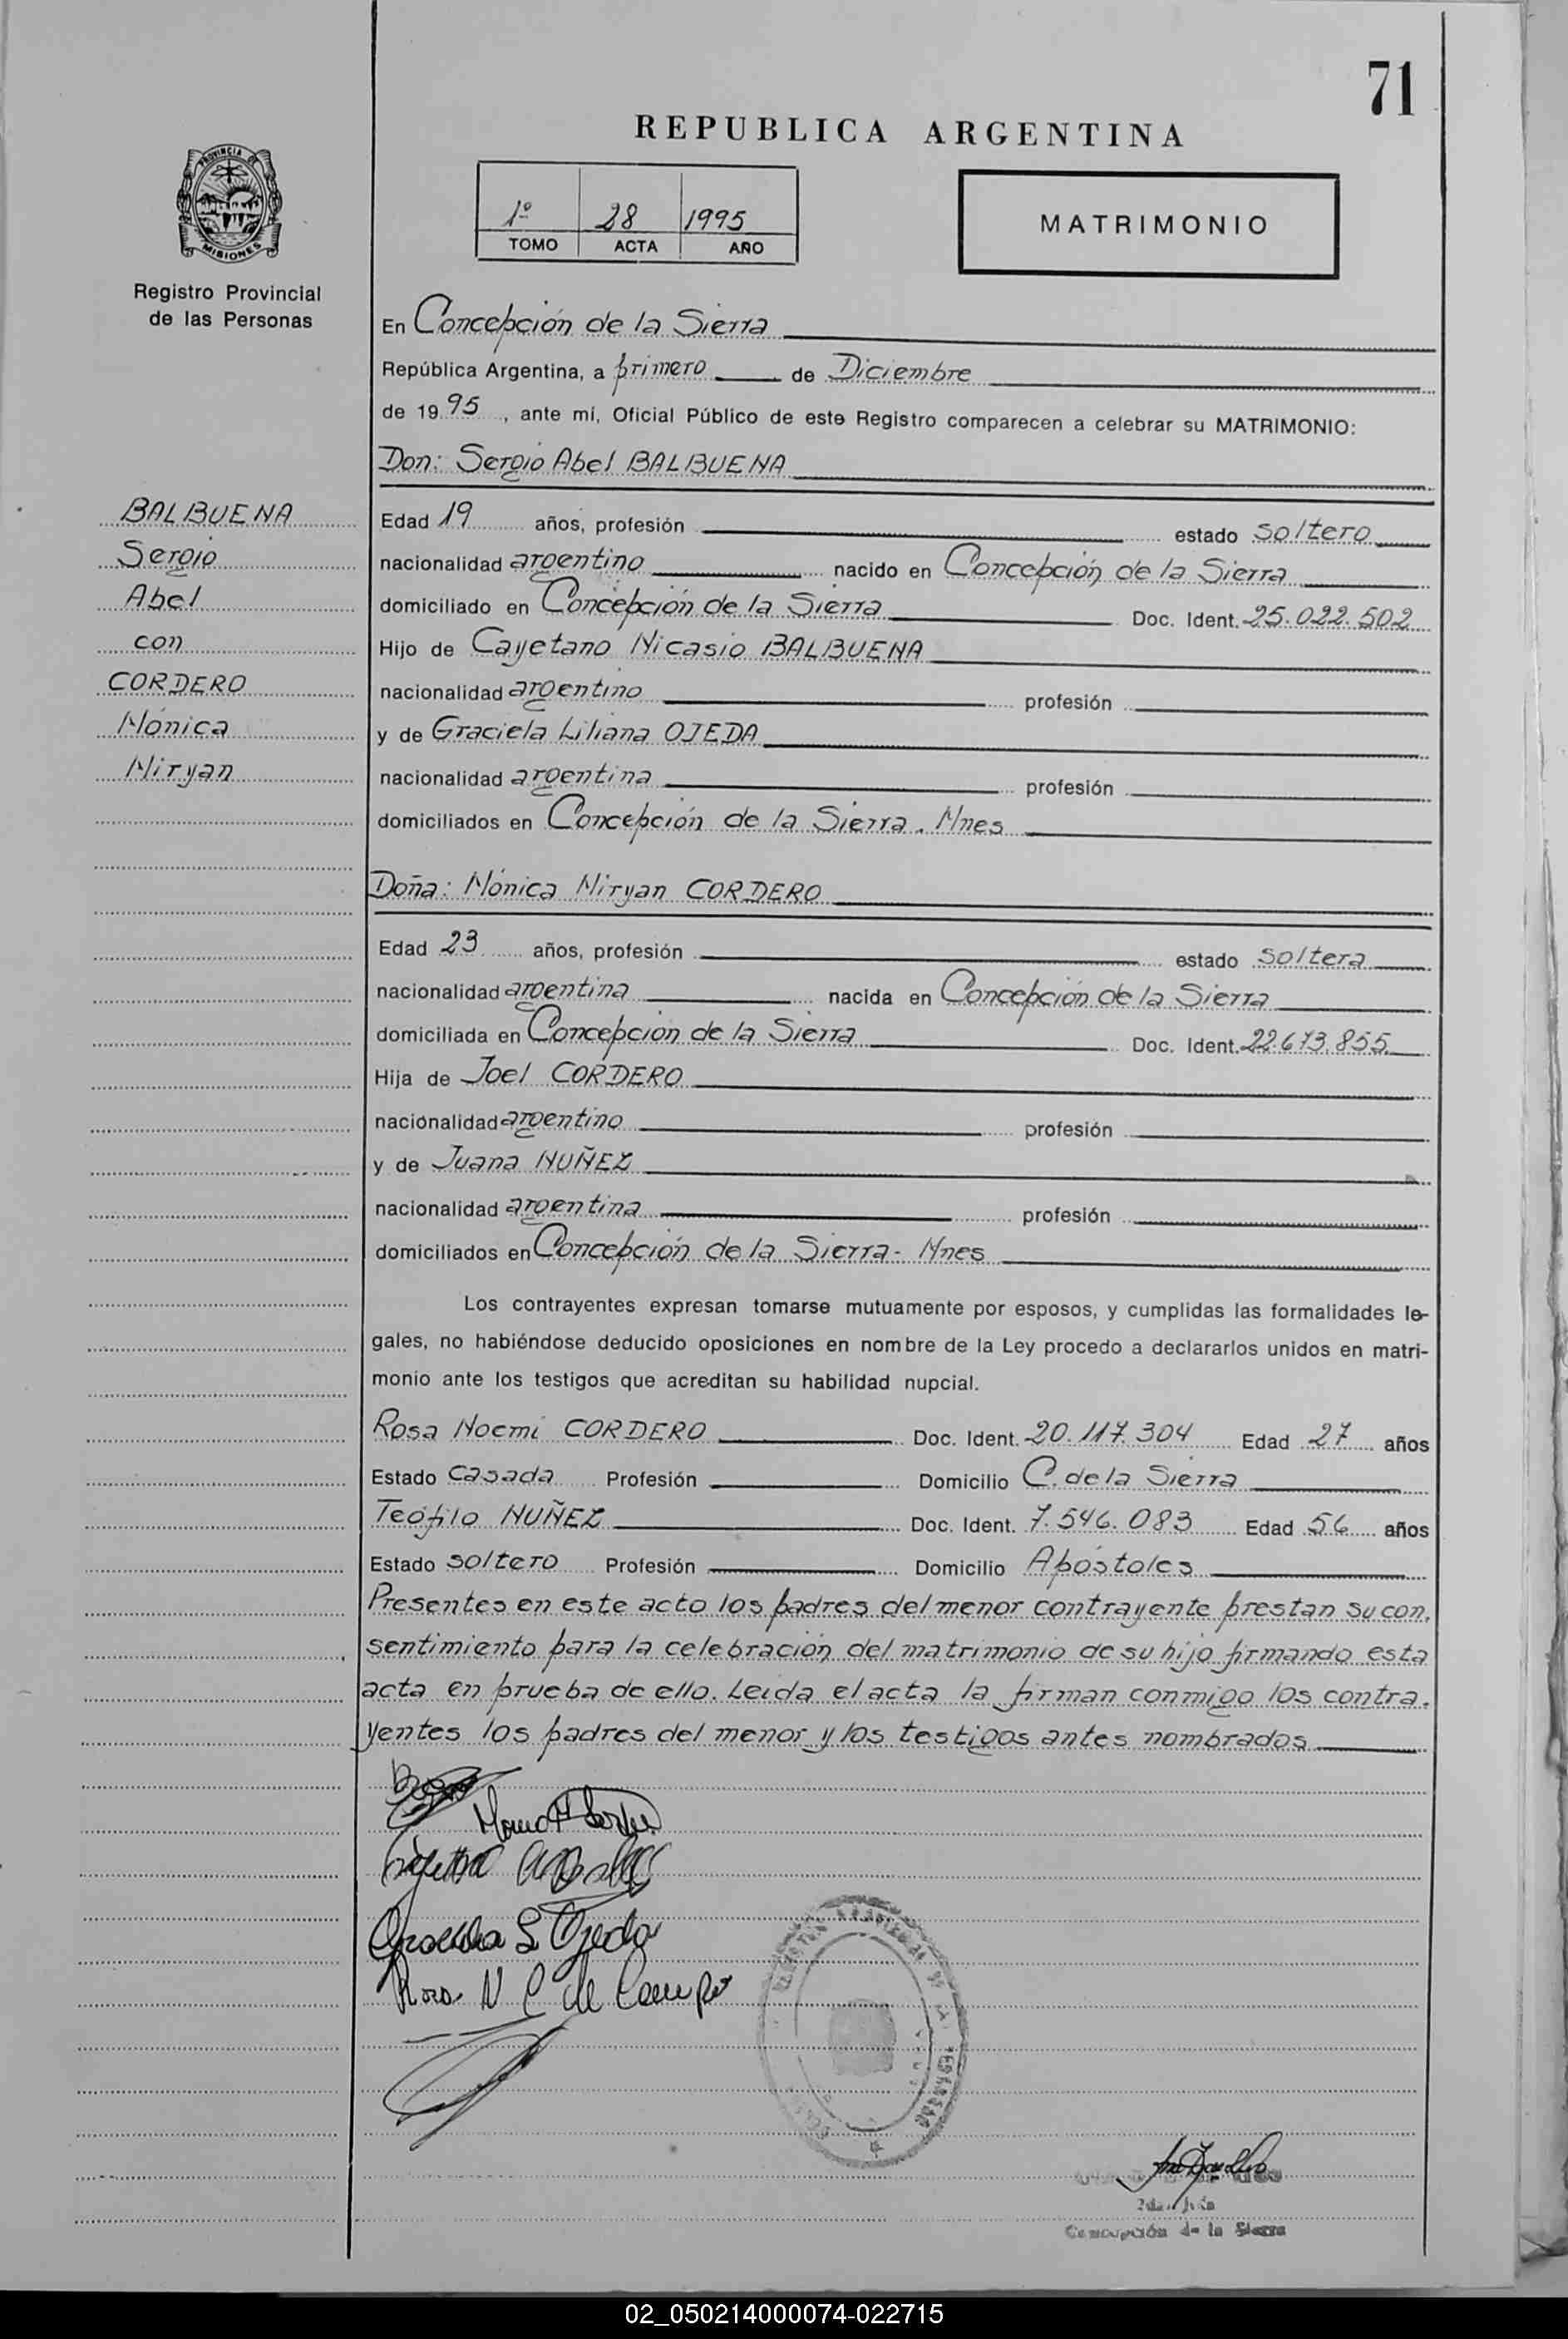 71
REPUBLICA ARGENTINA
PROVINCIA DE
MISIONES
1º 28 1995
TOMO ACTA AÑO
MATRIMONIO
Registro Provincial
de las Personas
En Concepción de la Sierra
República Argentina, a primero de Diciembre
de 1995, ante mí, Oficial Público de este Registro comparecen a celebrar su MATRIMONIO:
Don: Sergio Abel BALBUENA
BALBUENA
Sergio
Abel
con
CORDERO
Mónica
Miryan
Edad 19 años, profesión estado soltero
nacionalidad argentino nacido en Concepción de la Sierra
domiciliado en Concepción de la Sierra Doc. Ident. 25.022.502
Hijo de Cayetano Nicasio BALBUENA
nacionalidad argentino profesión
y de Graciela Liliana OJEDA
nacionalidad argentina profesión
domiciliados en Concepción de la Sierra. Mnes
Doña: Mónica Miryan CORDERO
Edad 23 años, profesión estado soltera
nacionalidad argentina nacida en Concepción de la Sierra
domiciliada en Concepción de la Sierra Doc. Ident. 22.673.855
Hija de Joel CORDERO
nacionalidad argentino profesión
y de Juana NUÑEZ
nacionalidad argentina profesión
domiciliados en Concepción de la Sierra- Mnes
Los contrayentes expresan tomarse mutuamente por esposos, y cumplidas las formalidades le-
gales, no habiéndose deducido oposiciones en nombre de la Ley procedo a declararlos unidos en matri-
monio ante los testigos que acreditan su habilidad nupcial.
Rosa Noemi CORDERO Doc. Ident. 20.117.304 Edad 27 años
Estado Casada Profesión Domicilio C. de la Sierra
Teófilo NUÑEZ Doc. Ident. 7.546.083 Edad 56 años
Estado soltero Profesión Domicilio Apóstoles
Presentes en este acto los padres del menor contrayente prestan su con.
sentimiento para la celebración del matrimonio de su hijo firmando esta
acta en prueba de ello. Leida el acta la firman conmigo los contra.
yentes los padres del menor y los testigos antes nombrados
Graciela L Ojeda
Rosa N C de
Concepción de la Sierra
02_050214000074-022715